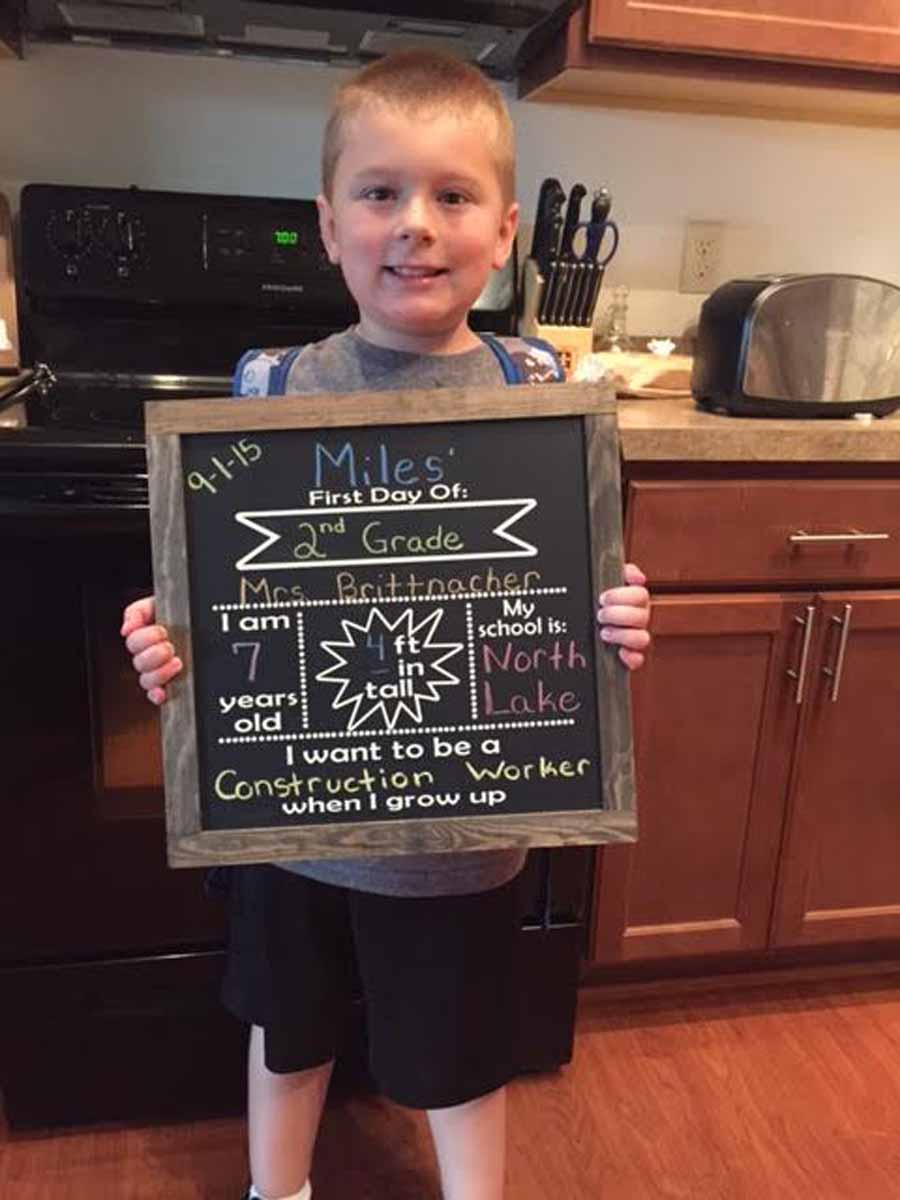 7:00
FRIGIDAIRE
9-1-15
Miles'
First Day Of:
2nd Grade
Mrs Brittnacher
I am
7
years
old
4 ft
- in
tall
My
school is:
North
Lake
I want to be a
Construction Worker
when I grow up